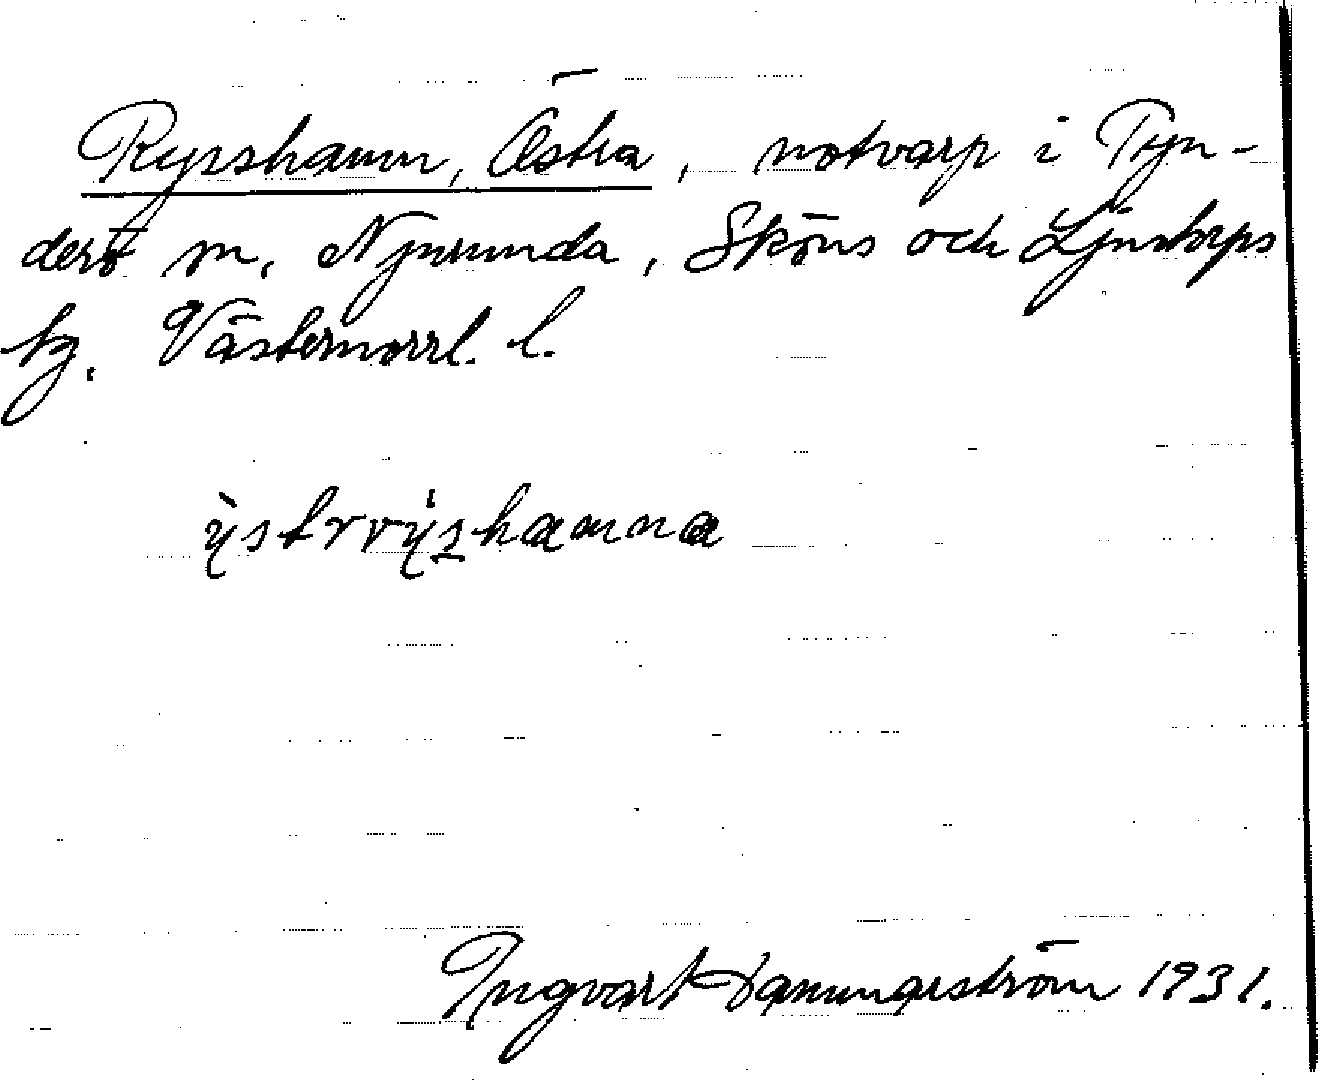 Ryrshamn, Östra, notvarp i Tyn-
derö m. Njurunda, Sköns och Ljustorps
tg. Västernorrl. l.
ỳstrvẏshamna
Ingvart 1931.